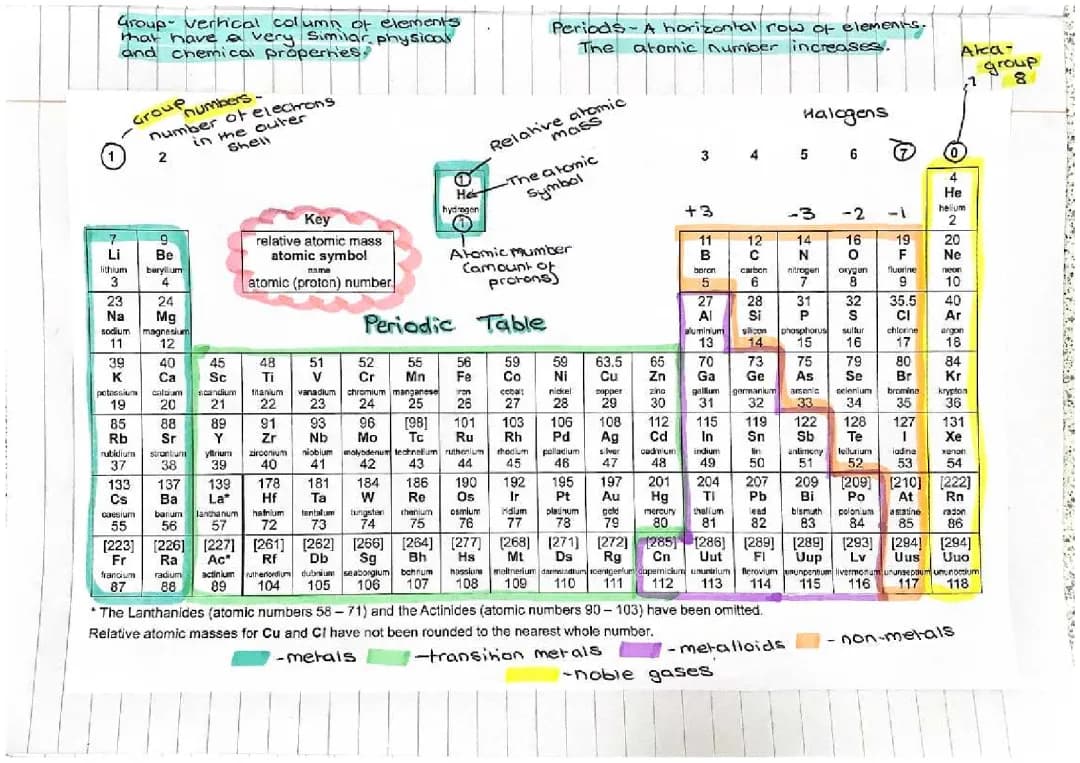 Group- vertical column of elements
that have a very similar physical
and chemical properties.
Periods - A horizontal row of elements.
The atomic number increases.
Aka-
group
8
Group numbers-
number of electrons
in the outer
shell
Relative atomic
mass
Halogens
1 2 3 4 5 6 7 0
1
H
hydrogen
1
The atomic
symbol
Atomic number
(amount of
protons)
4
He
helium
2
+3 -3 -2 -1
Key
relative atomic mass
atomic symbol
name
atomic (proton) number
Periodic Table
7 9 11 12 14 16 19 20
Li Be B C N O F Ne
lithium beryllium boron carbon nitrogen oxygen fluorine neon
3 4 5 6 7 8 9 10
23 24 27 28 31 32 35.5 40
Na Mg Al Si P S Cl Ar
sodium magnesium aluminium silicon phosphorus sulfur chlorine argon
11 12 13 14 15 16 17 18
39 40 45 48 51 52 55 56 59 59 63.5 65 70 73 75 79 80 84
K Ca Sc Ti V Cr Mn Fe Co Ni Cu Zn Ga Ge As Se Br Kr
potassium calcium scandium titanium vanadium chromium manganese iron cobalt nickel copper zinc gallium germanium arsenic selenium bromine krypton
19 20 21 22 23 24 25 26 27 28 29 30 31 32 33 34 35 36
85 88 89 91 93 96 [98] 101 103 106 108 112 115 119 122 128 127 131
Rb Sr Y Zr Nb Mo Tc Ru Rh Pd Ag Cd In Sn Sb Te I Xe
rubidium strontium yttrium zirconium niobium molybdenum technetium ruthenium rhodium palladium silver cadmium indium tin antimony tellurium iodine xenon
37 38 39 40 41 42 43 44 45 46 47 48 49 50 51 52 53 54
133 137 139 178 181 184 186 190 192 195 197 201 204 207 209 [209] [210] [222]
Cs Ba La* Hf Ta W Re Os Ir Pt Au Hg Tl Pb Bi Po At Rn
caesium barium lanthanum hafnium tantalum tungsten rhenium osmium iridium platinum gold mercury thallium lead bismuth polonium astatine radon
55 56 57 72 73 74 75 76 77 78 79 80 81 82 83 84 85 86
[223] [226] [227] [261] [262] [266] [264] [277] [268] [271] [272] [285] [286] [289] [289] [293] [294] [294]
Fr Ra Ac* Rf Db Sg Bh Hs Mt Ds Rg Cn Uut Fl Uup Lv Uus Uuo
francium radium actinium rutherfordium dubnium seaborgium bohrium hassium meitnerium darmstadtium roentgenium copernicium ununtrium flerovium ununpentium livermorium ununseptium ununoctium
87 88 89 104 105 106 107 108 109 110 111 112 113 114 115 116 117 118
* The Lanthanides (atomic numbers 58 – 71) and the Actinides (atomic numbers 90 – 103) have been omitted.
Relative atomic masses for Cu and Cl have not been rounded to the nearest whole number.
-metals -transition metals -metalloids - non-metals
-noble gases